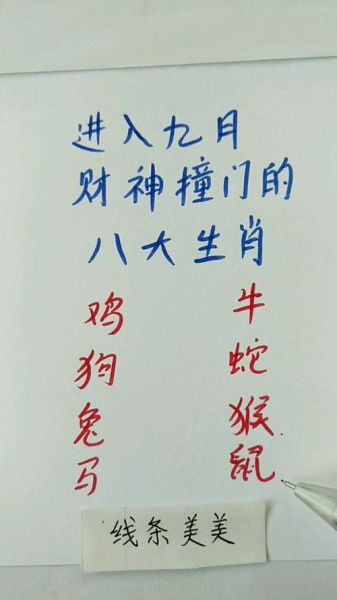 进入九月
财神撞门的
八大生肖
鸡 牛
狗 蛇
兔 猴
马 鼠
线条美美